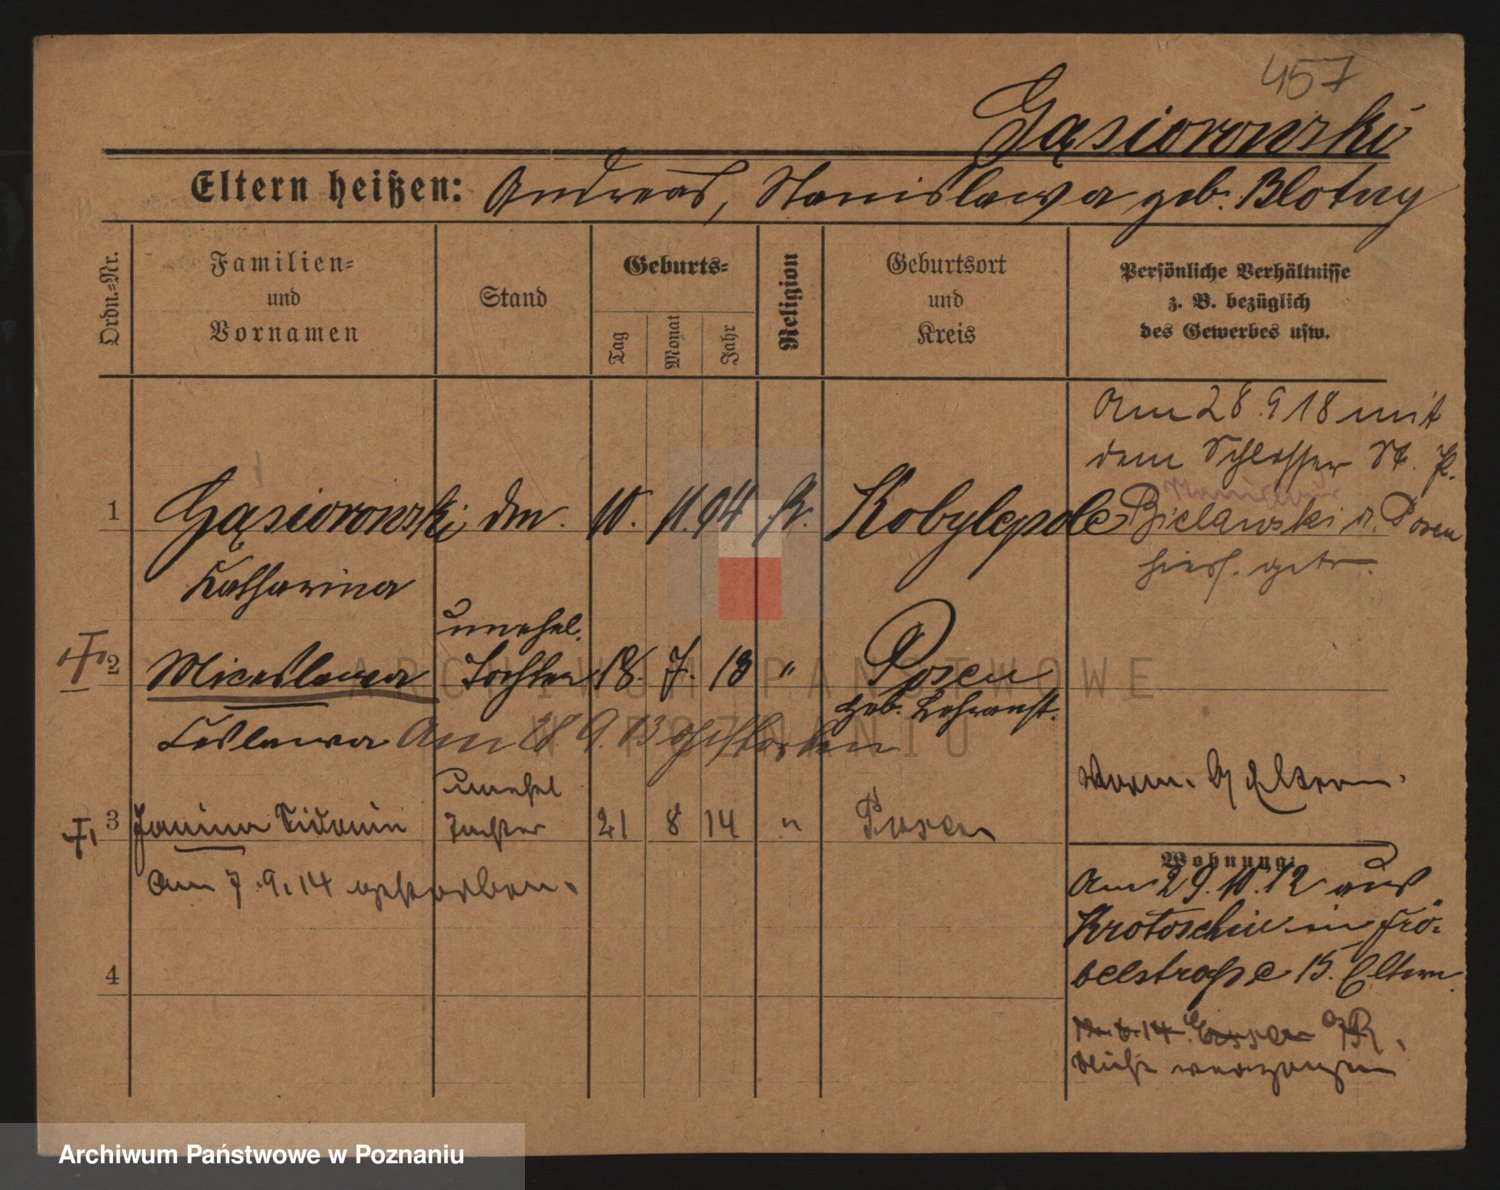 457
Gąsiorowski
Eltern heißen: Andreas, Stanislawa geb. Blotny
Ordn.-Nr.
Familien-
und
Vornamen
Stand
Geburts-
Tag
Monat
Jahr
Religion
Geburtsort
und
Kreis
Persönliche Verhältnisse
z. B. bezüglich
des Gewerbes usw.
Am 28.9 18 mit
dem Schlosser St. P.
1 Gąsiorowski, Dm. 10. 11. 94 k. Kobylepole Bielawski a. Posen
hies. getr.
Katharina
unehel.
2 Miceslawa Tochter 18. 7. 13 " Posen
geb. Lehranst.
Ceslawa Am 28. 9. 13 gestorben
unehel
3 Janina Sidonia Tochter 21 8 14 " Posen
Am 7.9.14 gestorben.
Worm. b/ Eltern.
Wohnung:
Am 29.10.12 aus
Krotoschin in Frö-
belstraße 15. Eltern.
14 Essen
nicht verzogen
4
ARCHIWUM PAŃSTWOWE
W POZNANIU
Archiwum Państwowe w Poznaniu